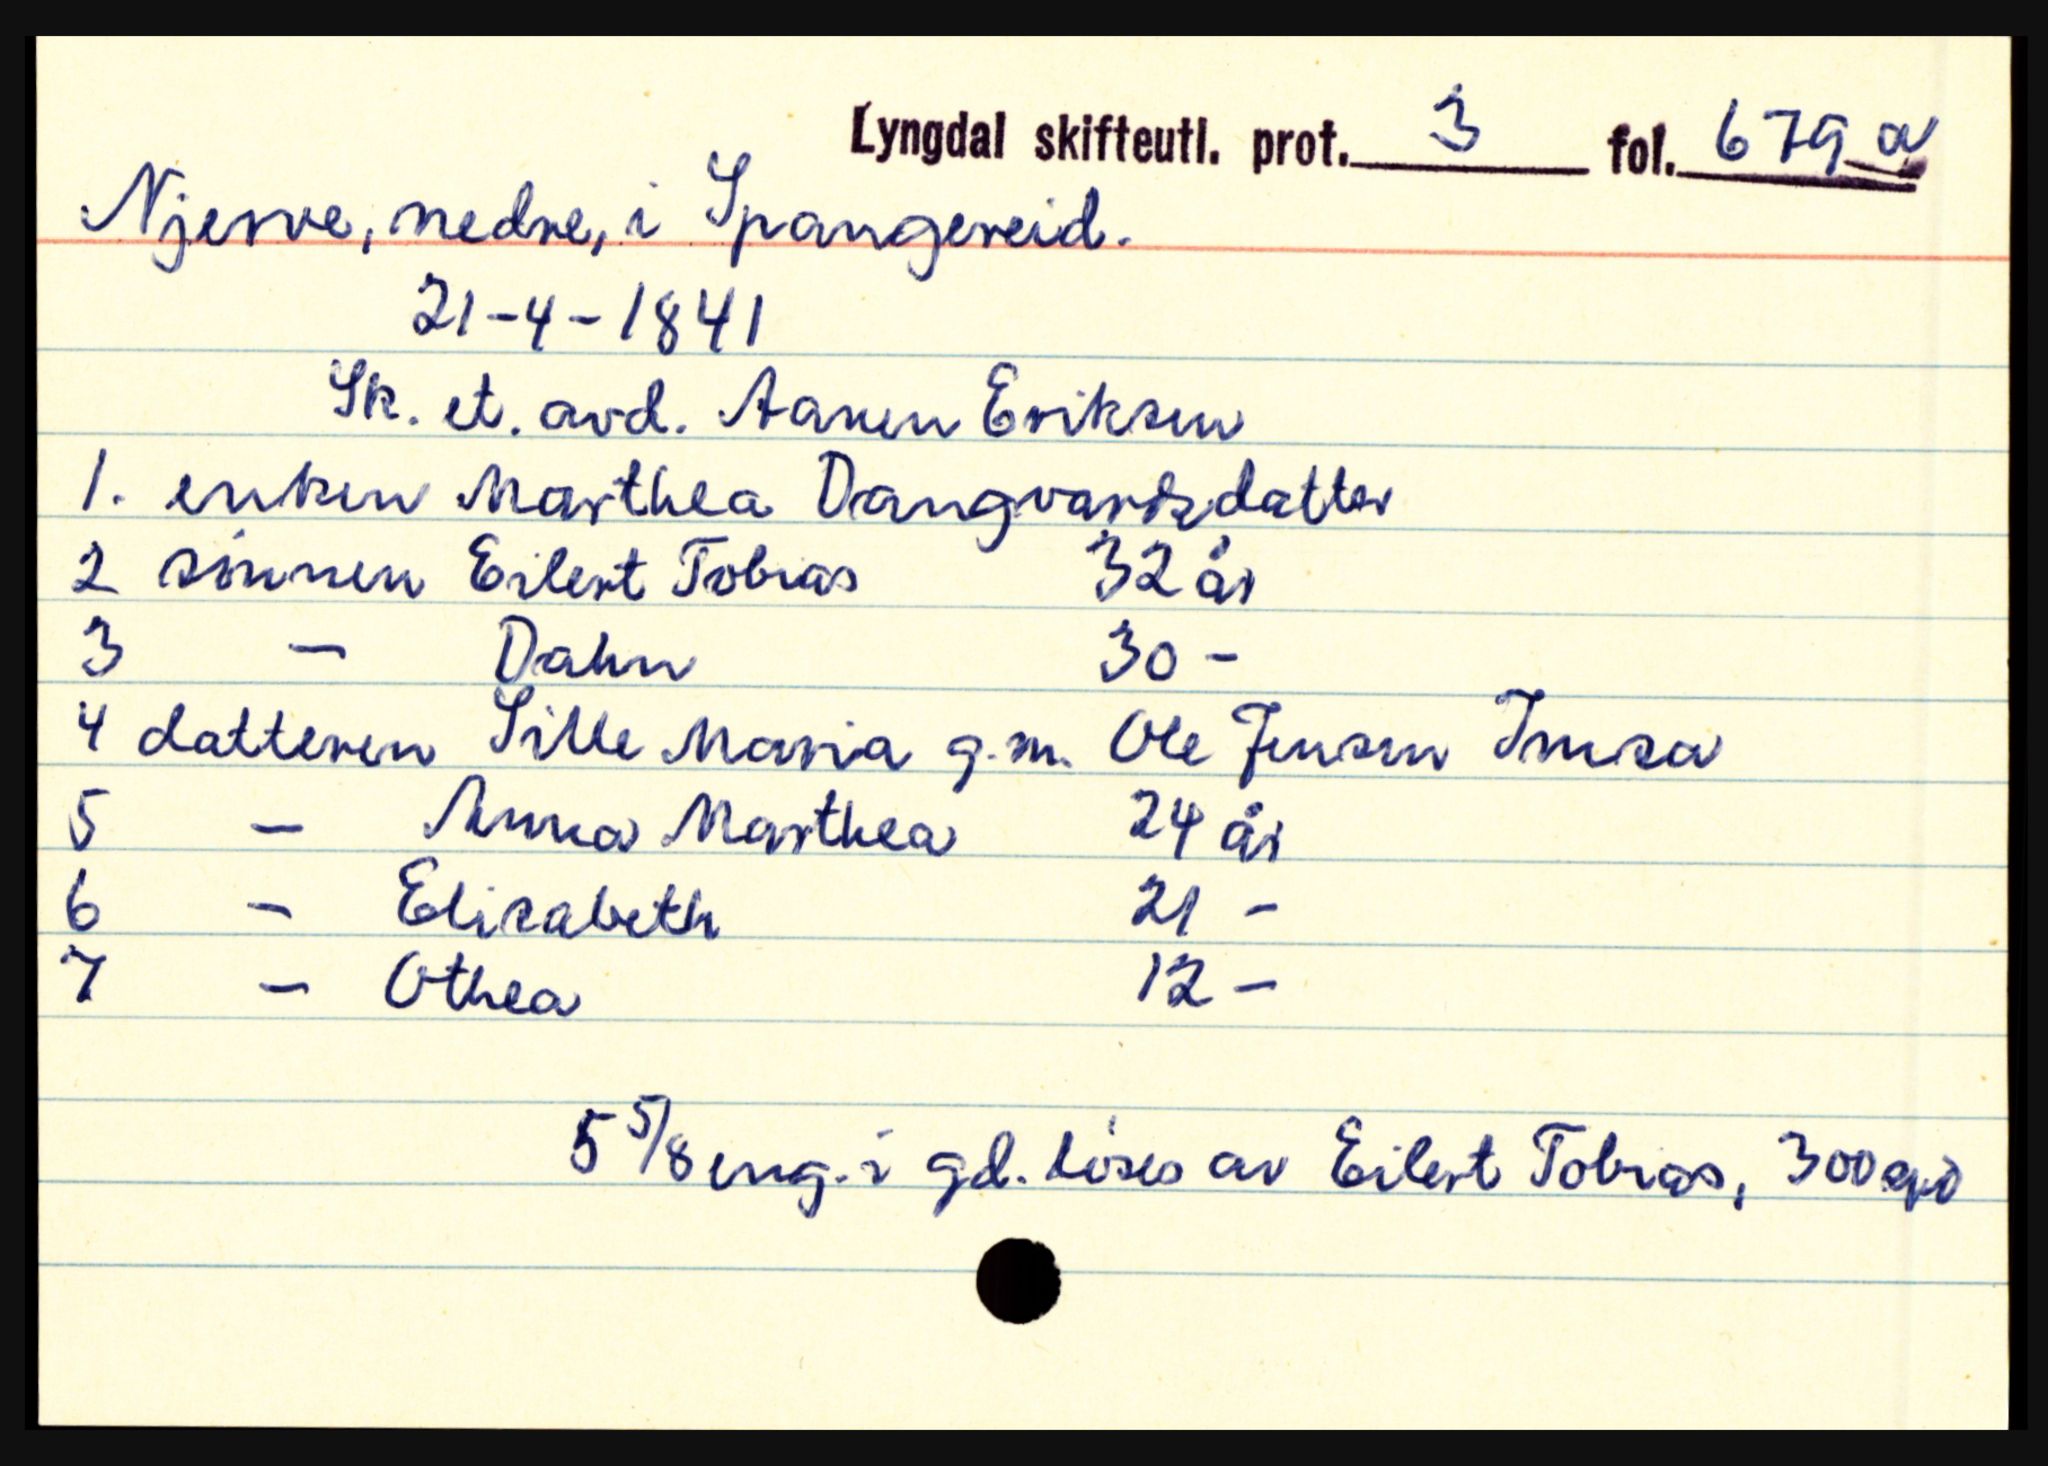 Lyngdal skifteutl. prot. 3 fol. 679 a
Njerve, nedre, i Spangereid.
21-4-1841
Sk. et. avd. Aanen Eriksen
1. enken Marthea Dangvardsdatter
2 sönnen Eilert Tobias 32 år
3 - Dahn 30 -
4 datteren Sille Maria g.m. Ole Jensen Imsa
5 - Anna Marthea 24 år
6 - Elisabeth 21 -
7 - Othea 12 -
5 5/8 eng. i gd. löses av Eilert Tobias, 300